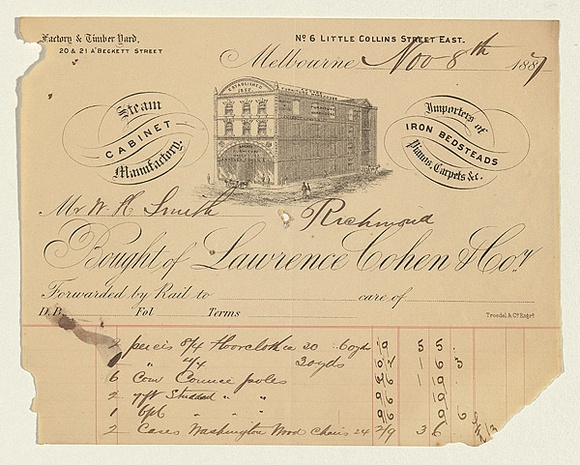 Factory & Timber Yard.
20 & 21 A'BECKETT STREET
No 6 LITTLE COLLINS STREET EAST.
Melbourne Nov 8th 1887
Steam
CABINET
Manufactory.
ESTABLISHED
Importers of
IRON BEDSTEADS
Pianos, Carpets &c.
Mr W. H. Smith Richmond
Bought of Lawrence Cohen & Coy
Forwarded by Rail to care of
D.B. Fol Terms
Troedel & Co Engrs
2 peices 8/4 Floorcloth 20 60yds 55
" 4/4 20yds
6 Poles
2 7ft " "
1 6ft " " "
2 Cases Washington Wood Chairs 24 2/9 36